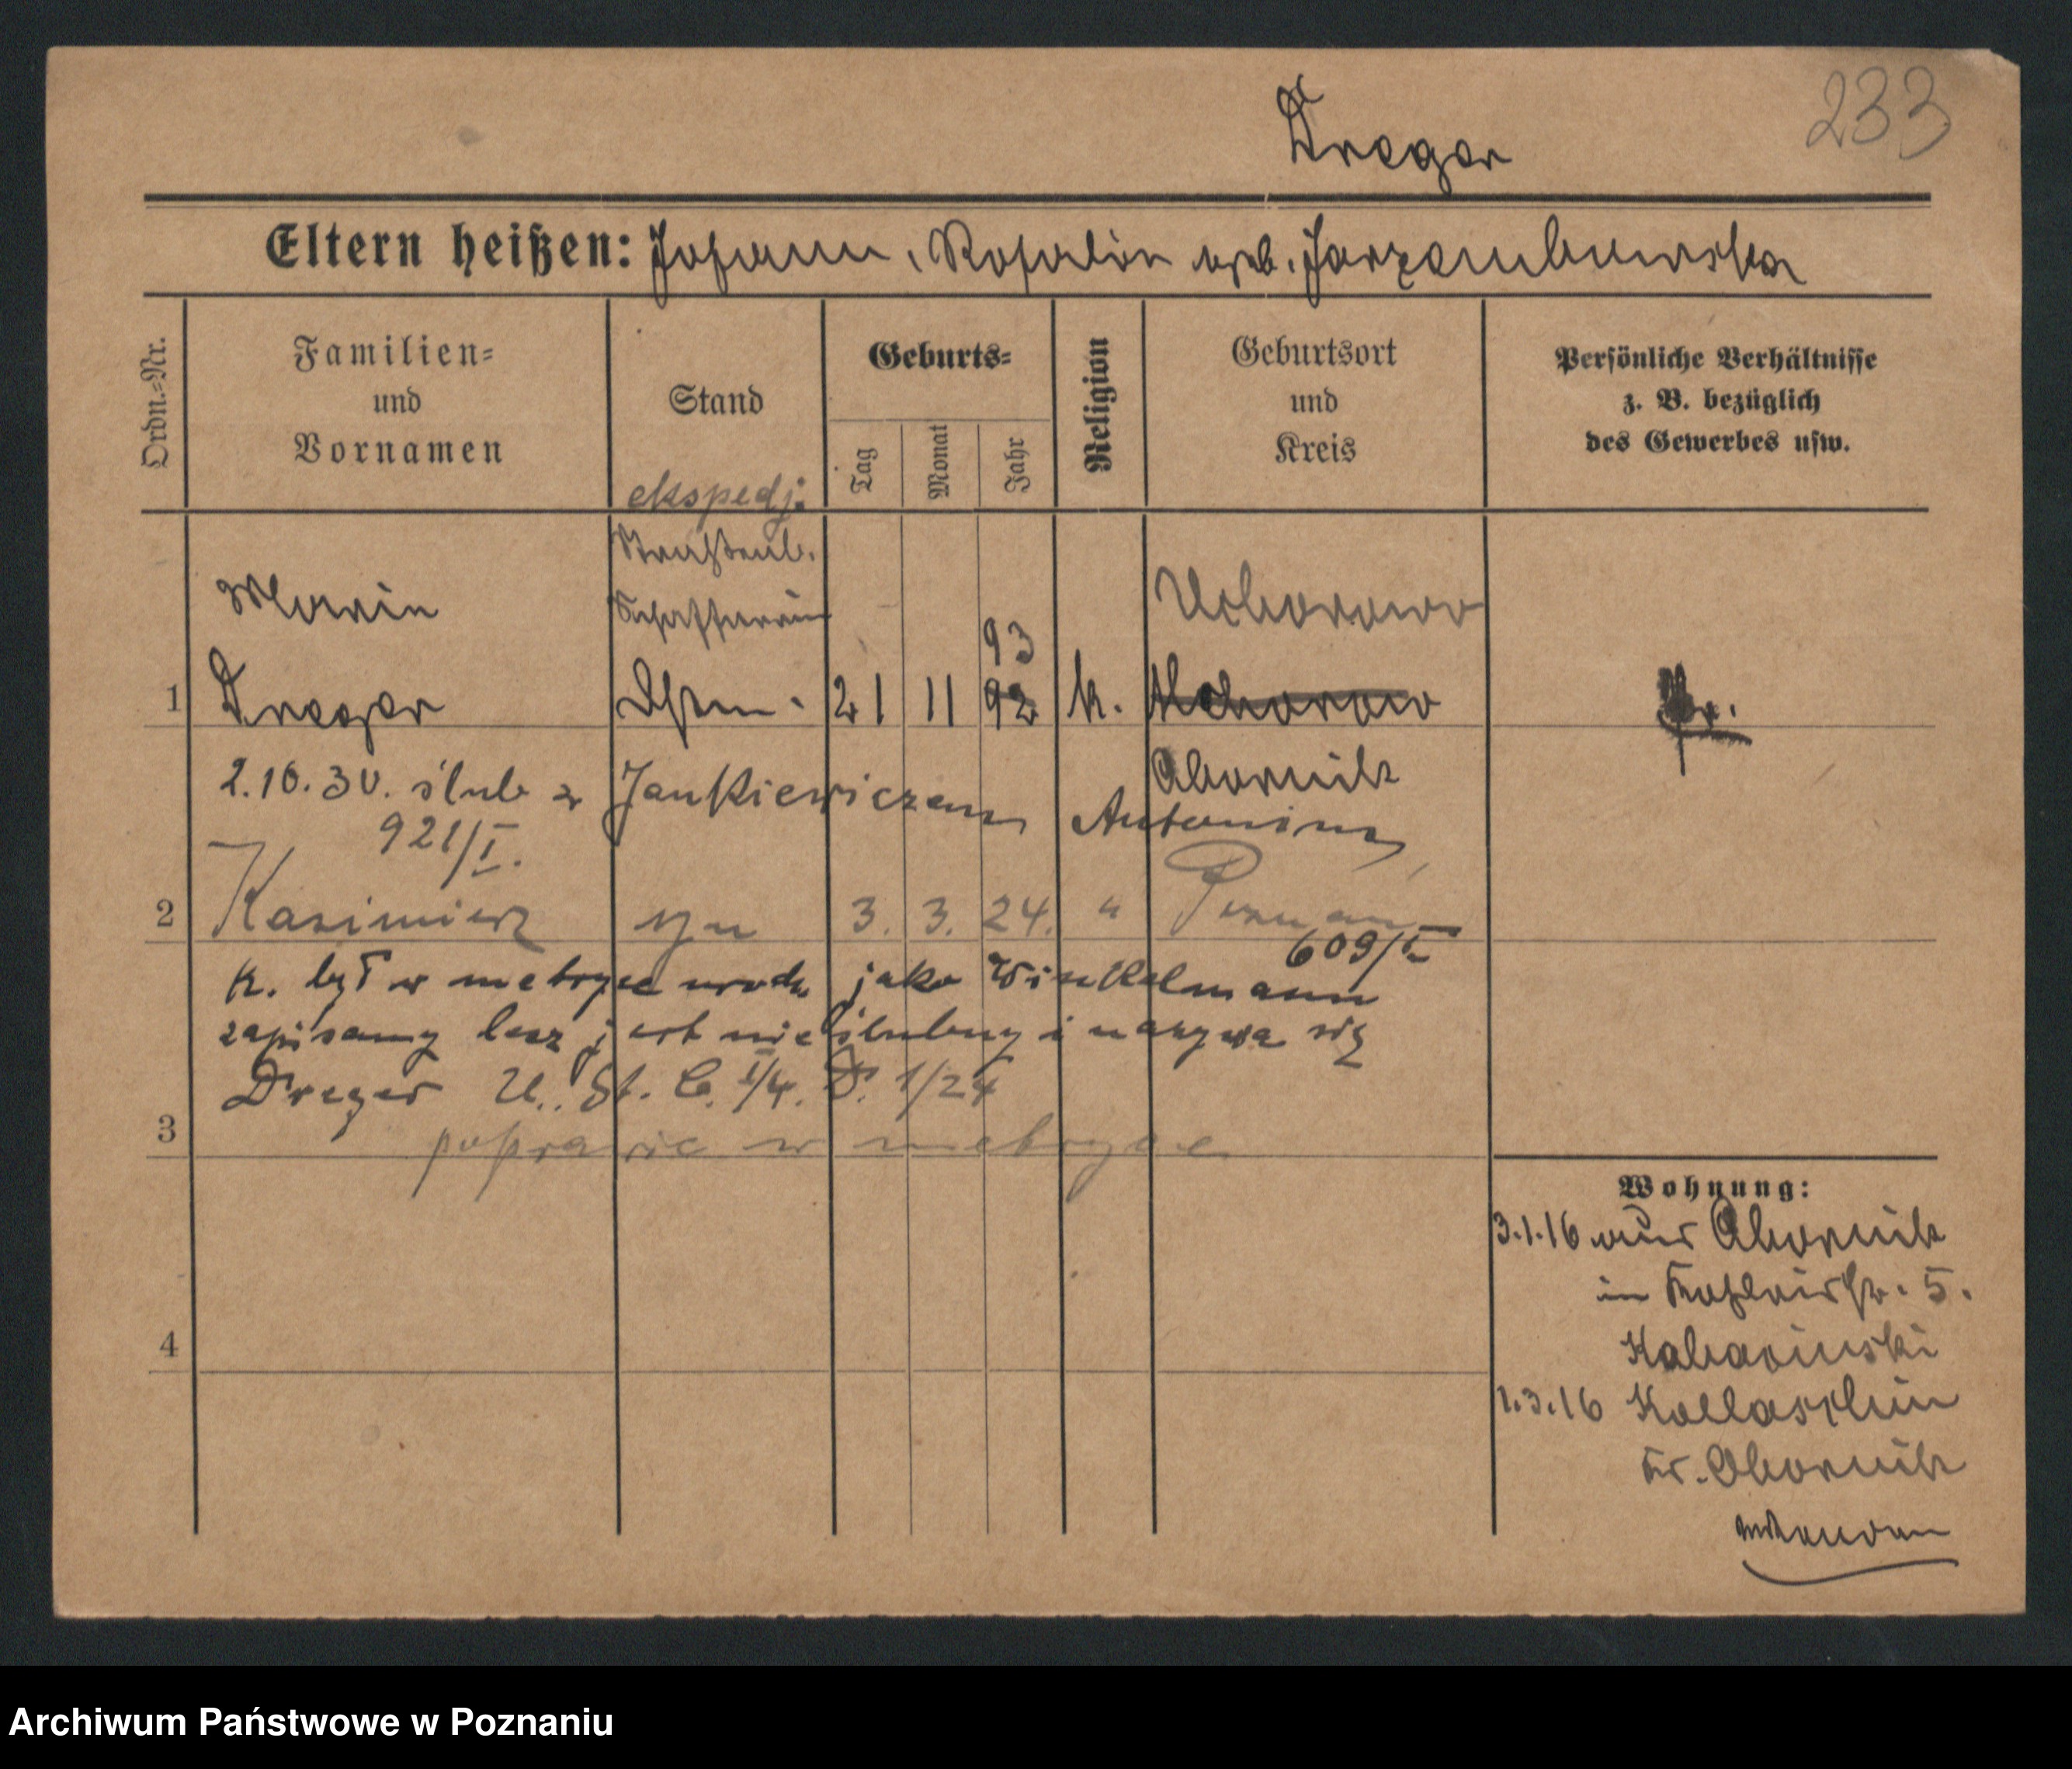 233
Dreger
Eltern heißen: Johann, Rosalie geb. Jarzembowska
Ordn.-Nr.
Familien- und Vornamen
Stand
Geburts-
Tag
Monat
Jahr
Religion
Geburtsort und Kreis
Persönliche Verhältnisse z. B. bezüglich des Gewerbes usw.
ekspedj.
Straßenb.
Marie Schaffnerin Uchorowo
93
1 Dreger Ehm. 21 11 92 k. Uchorowo
Obornik
2.10.30. ślub z Jankiewiczem Antonim
921/I.
2 Kazimierz syn 3. 3. 24. " Poznań
609/I
K. był w metryce urodz. jako Winkelmann
zapisany lecz jest nieślubny i nazywa się
Dreger U. St. C. I/4. D. 1/24
3
poprawić w metryce
4
Wohnung:
3.1.16 aus Obornik
in 5.
1.3.16
Kr. Obornik
Archiwum Państwowe w Poznaniu